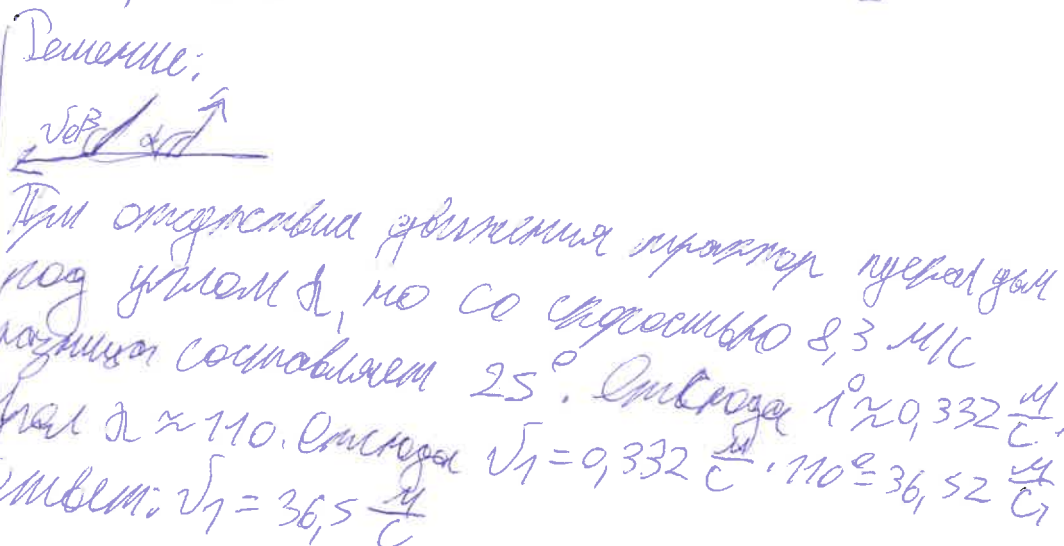 Решение:
v₀ β α
При отсутствии движения трактор пускал дым
под углом α, но со скоростью 8,3 м/с
разница составляет 25°. Отсюда 1° ≈ 0,332 м/с.
Угол α ≈ 110. Отсюда v₁ = 0,332 м/с · 110° = 36,52 м/с,
Ответ: v₁ = 36,5 м/с